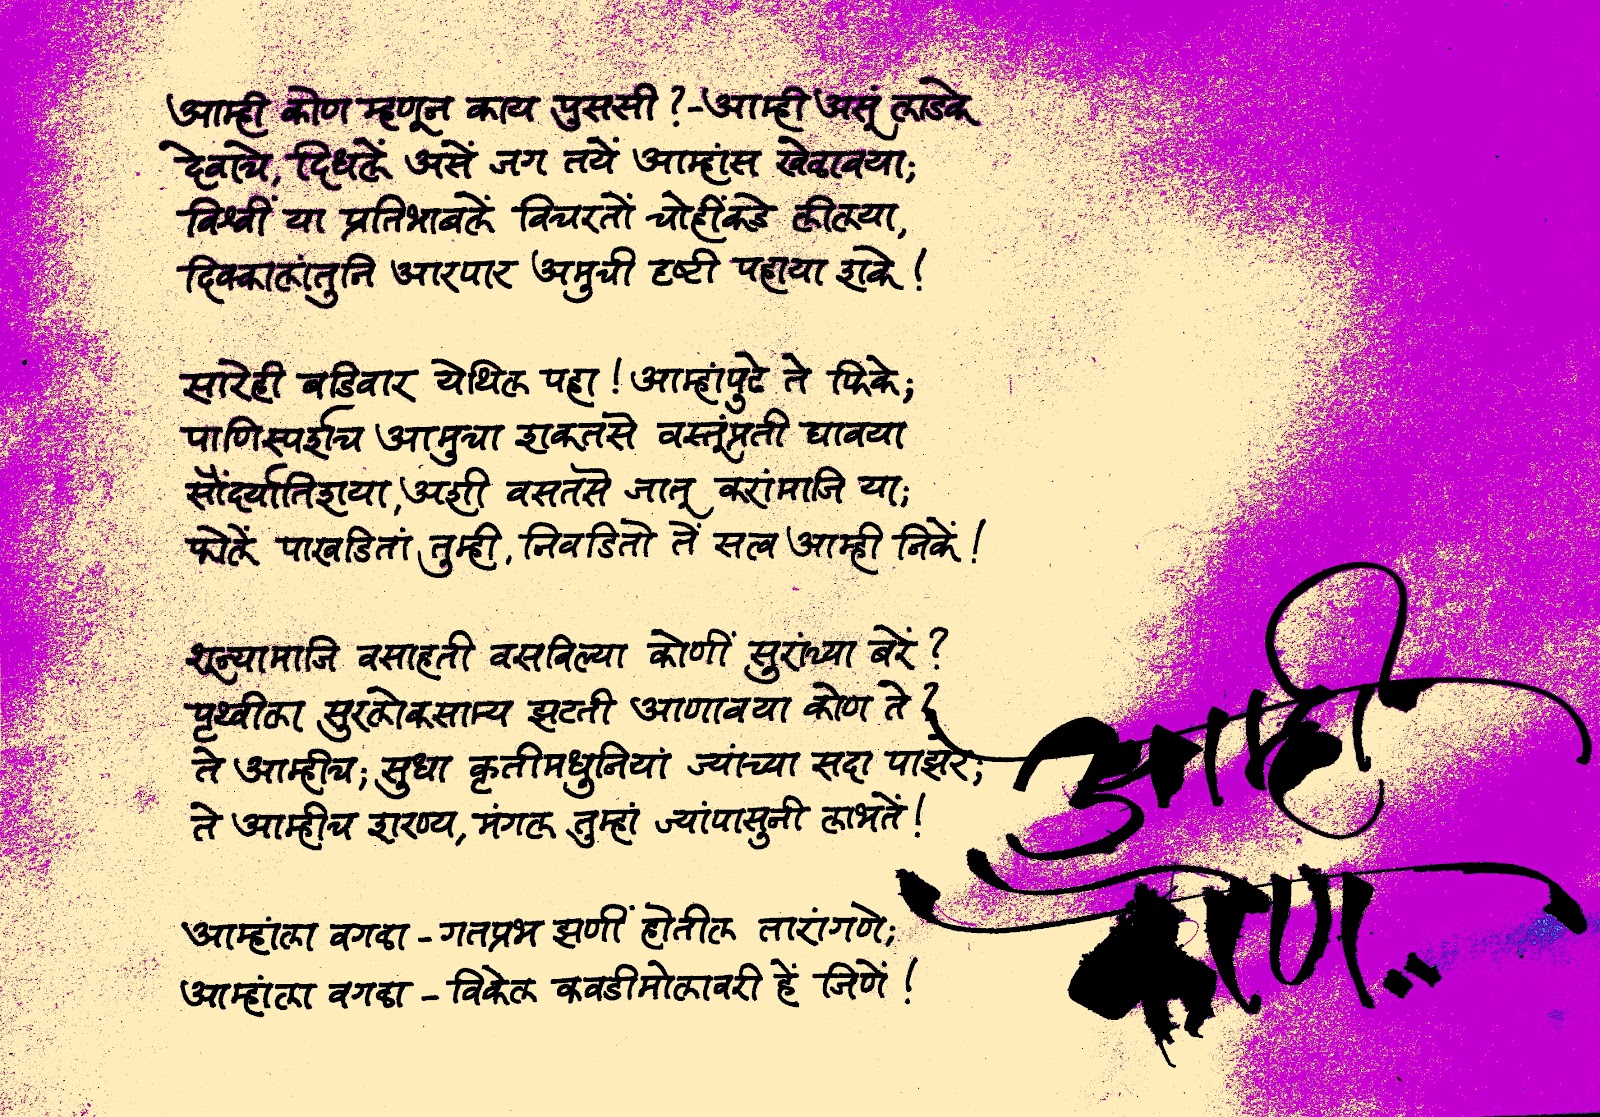 आम्ही कोण म्हणून काय पुससी ?-आम्ही असूं लाडके
देवाचे, दिधलें असें जग तयें आम्हांस खेळावया;
विश्वीं या प्रतिभाबलें विचरतों चोहींकडे लीलया,
दिक्कालांतुनि आरपार अमुची दृष्टी पहाया शके !
सारेही बडिवार येथिल पहा ! आम्हांपुढे ते फिके;
पाणिस्पर्शच आमुचा शकतसे वस्तूंप्रती द्यावया
सौंदर्यातिशया, अशी वसतसे जादू करांमाजि या;
फोलें पाखडितां तुम्ही, निवडितो तें सत्व आम्ही निकें !
शून्यामाजि वसाहती वसविल्या कोणीं सुरांच्या बरें ?
पृथ्वीला सुरलोकसाम्य झटती आणावया कोण ते ?
ते आम्हीच; सुधा कृतीमधुनियां ज्यांच्या सदा पाझरे;
ते आम्हीच शरण्य, मंगल तुम्हां ज्यांपासुनी लाभतें !
आम्हांला वगळा - गतप्रभ झणीं होतील तारांगणे;
आम्हांला वगळा - विकेल कवडीमोलावरी हें जिणें !
आम्ही
कोण..